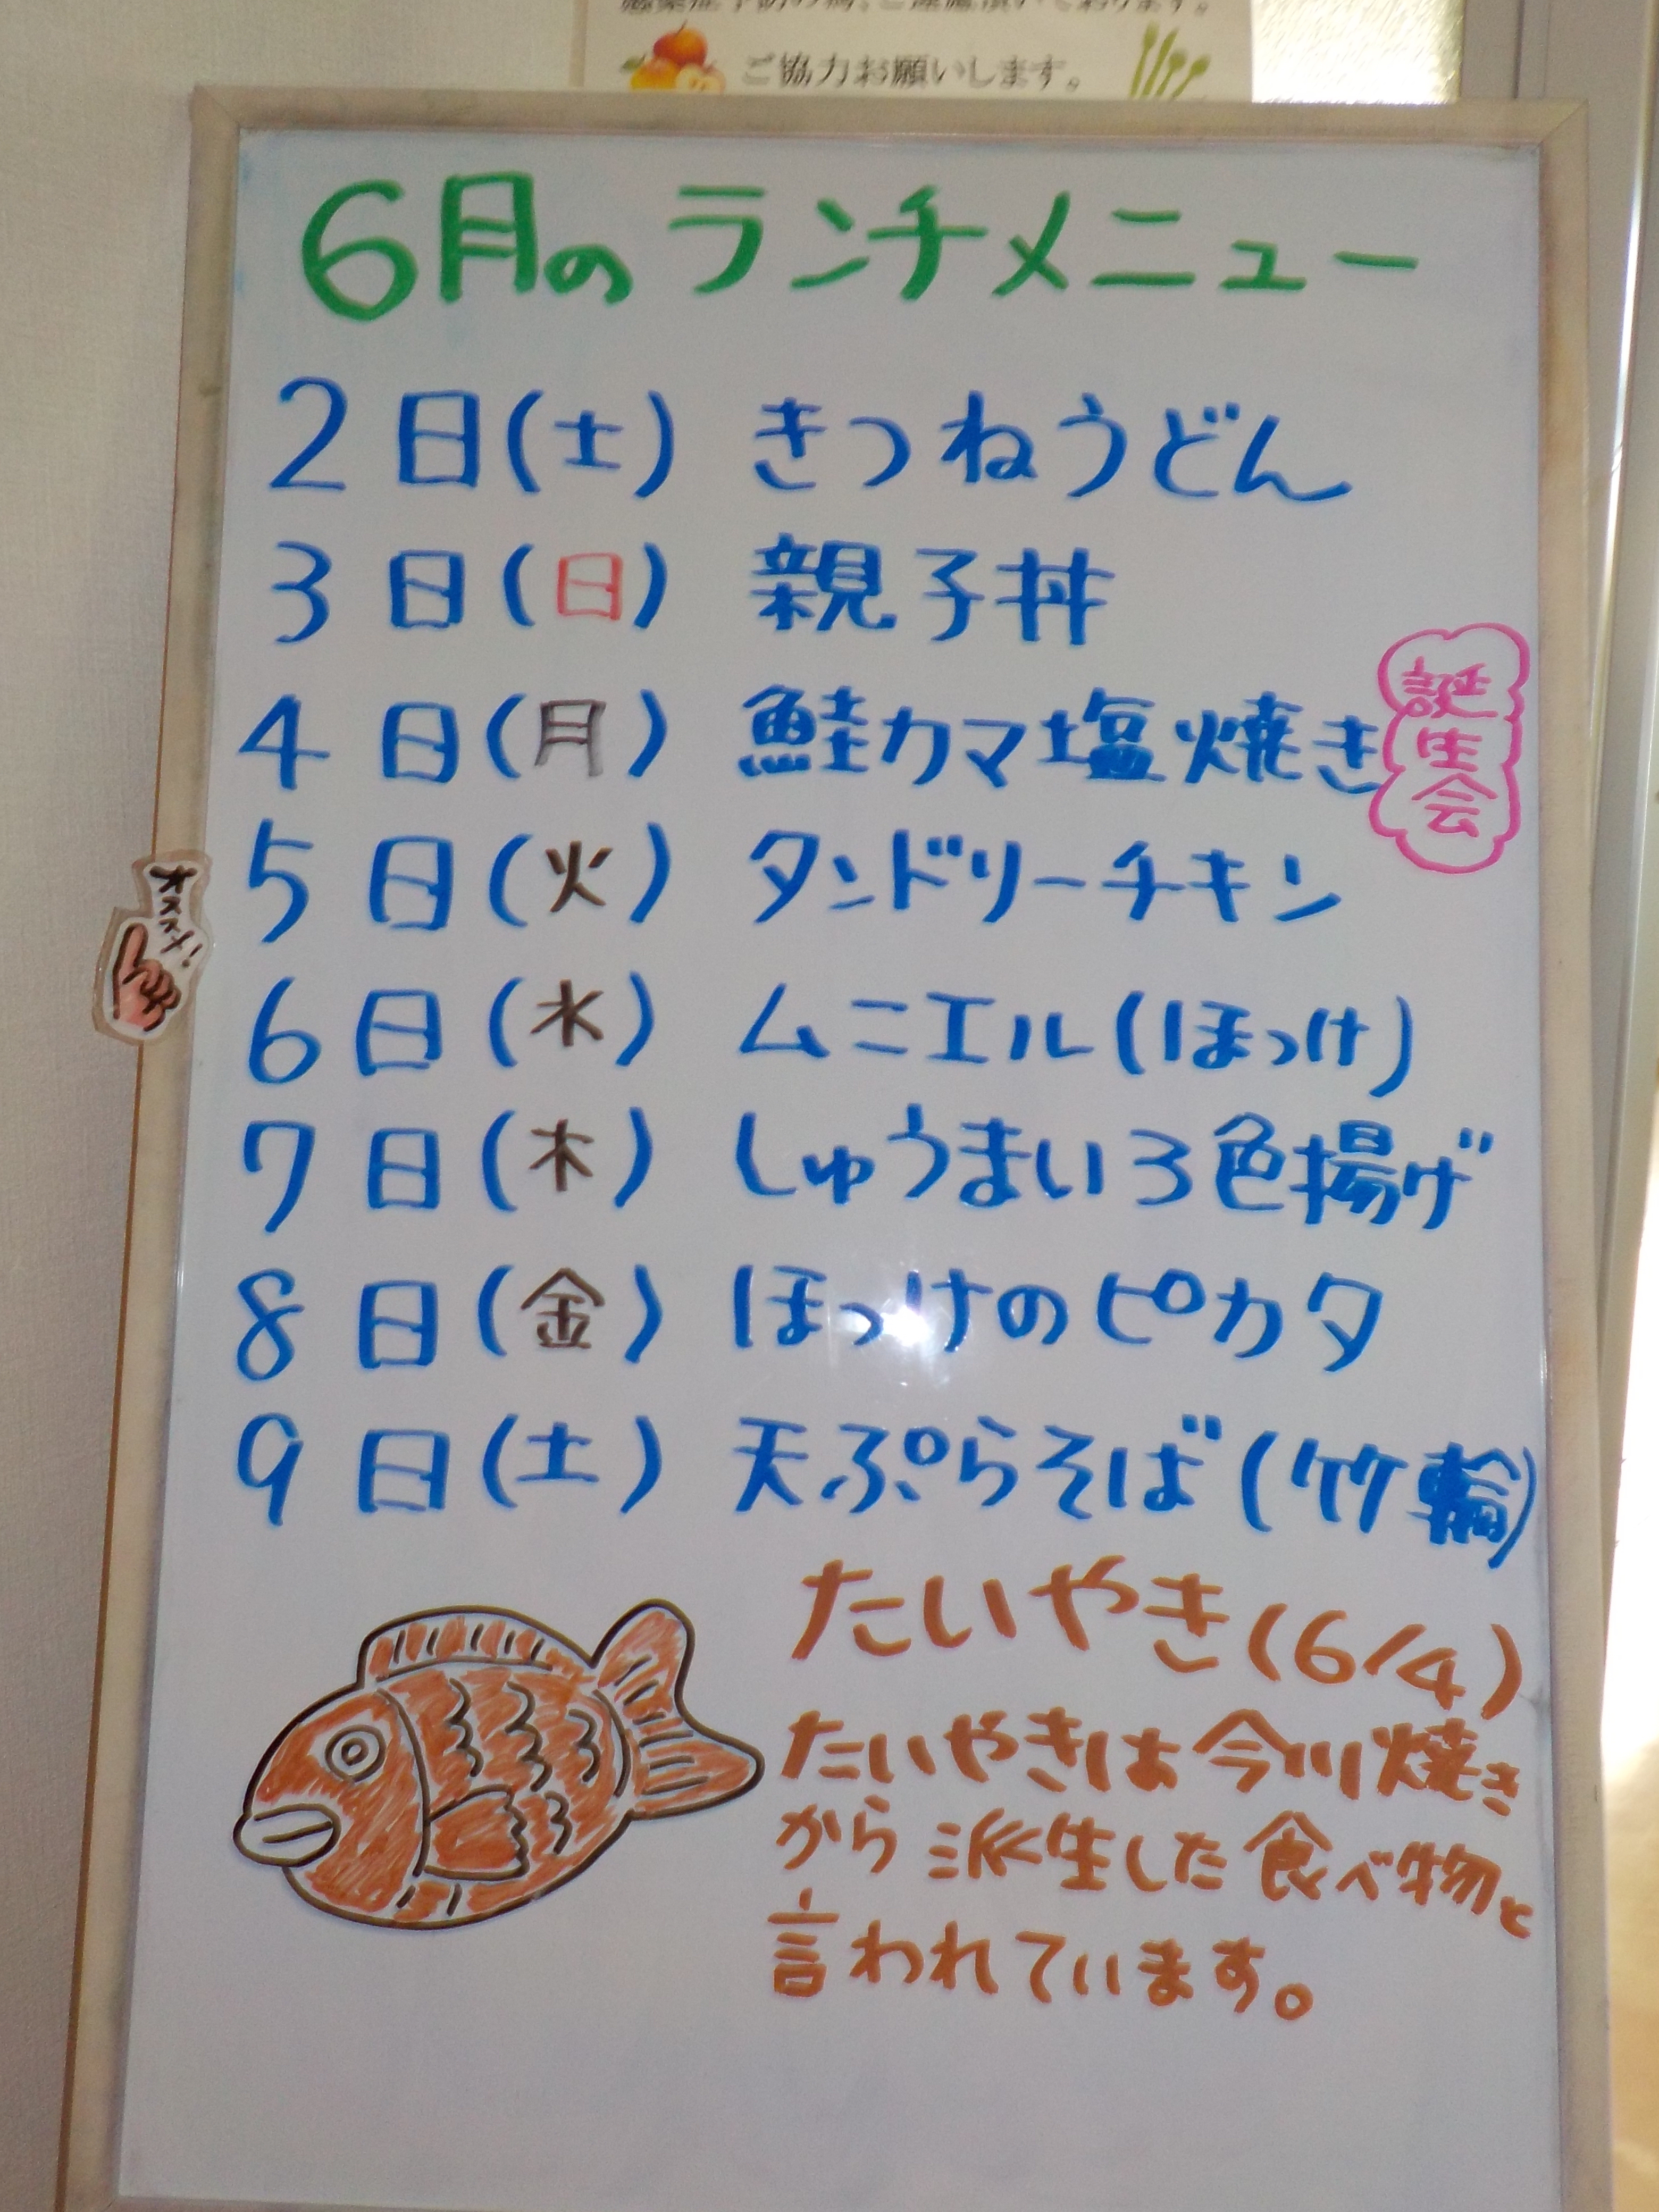 ご協力お願いします。
6月のランチメニュー
2日(土) きつねうどん
3日(日) 親子丼
4日(月) 鮭カマ塩焼き
誕生会
5日(火) タンドリーチキン
オススメ!
6日(水) ムニエル(ほっけ)
7日(木) しゅうまい3色揚げ
8日(金) ほっけのピカタ
9日(土) 天ぷらそば(竹輪)
たいやき(6/4)
たいやきは今川焼き
から派生した食べ物と
言われています。